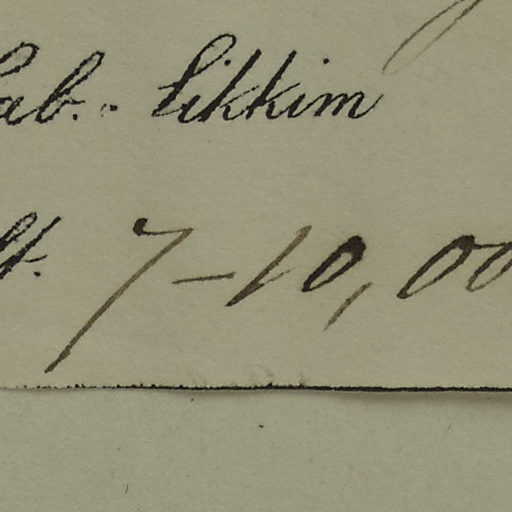 Hab. Sikkim
Alt. 7-10,00